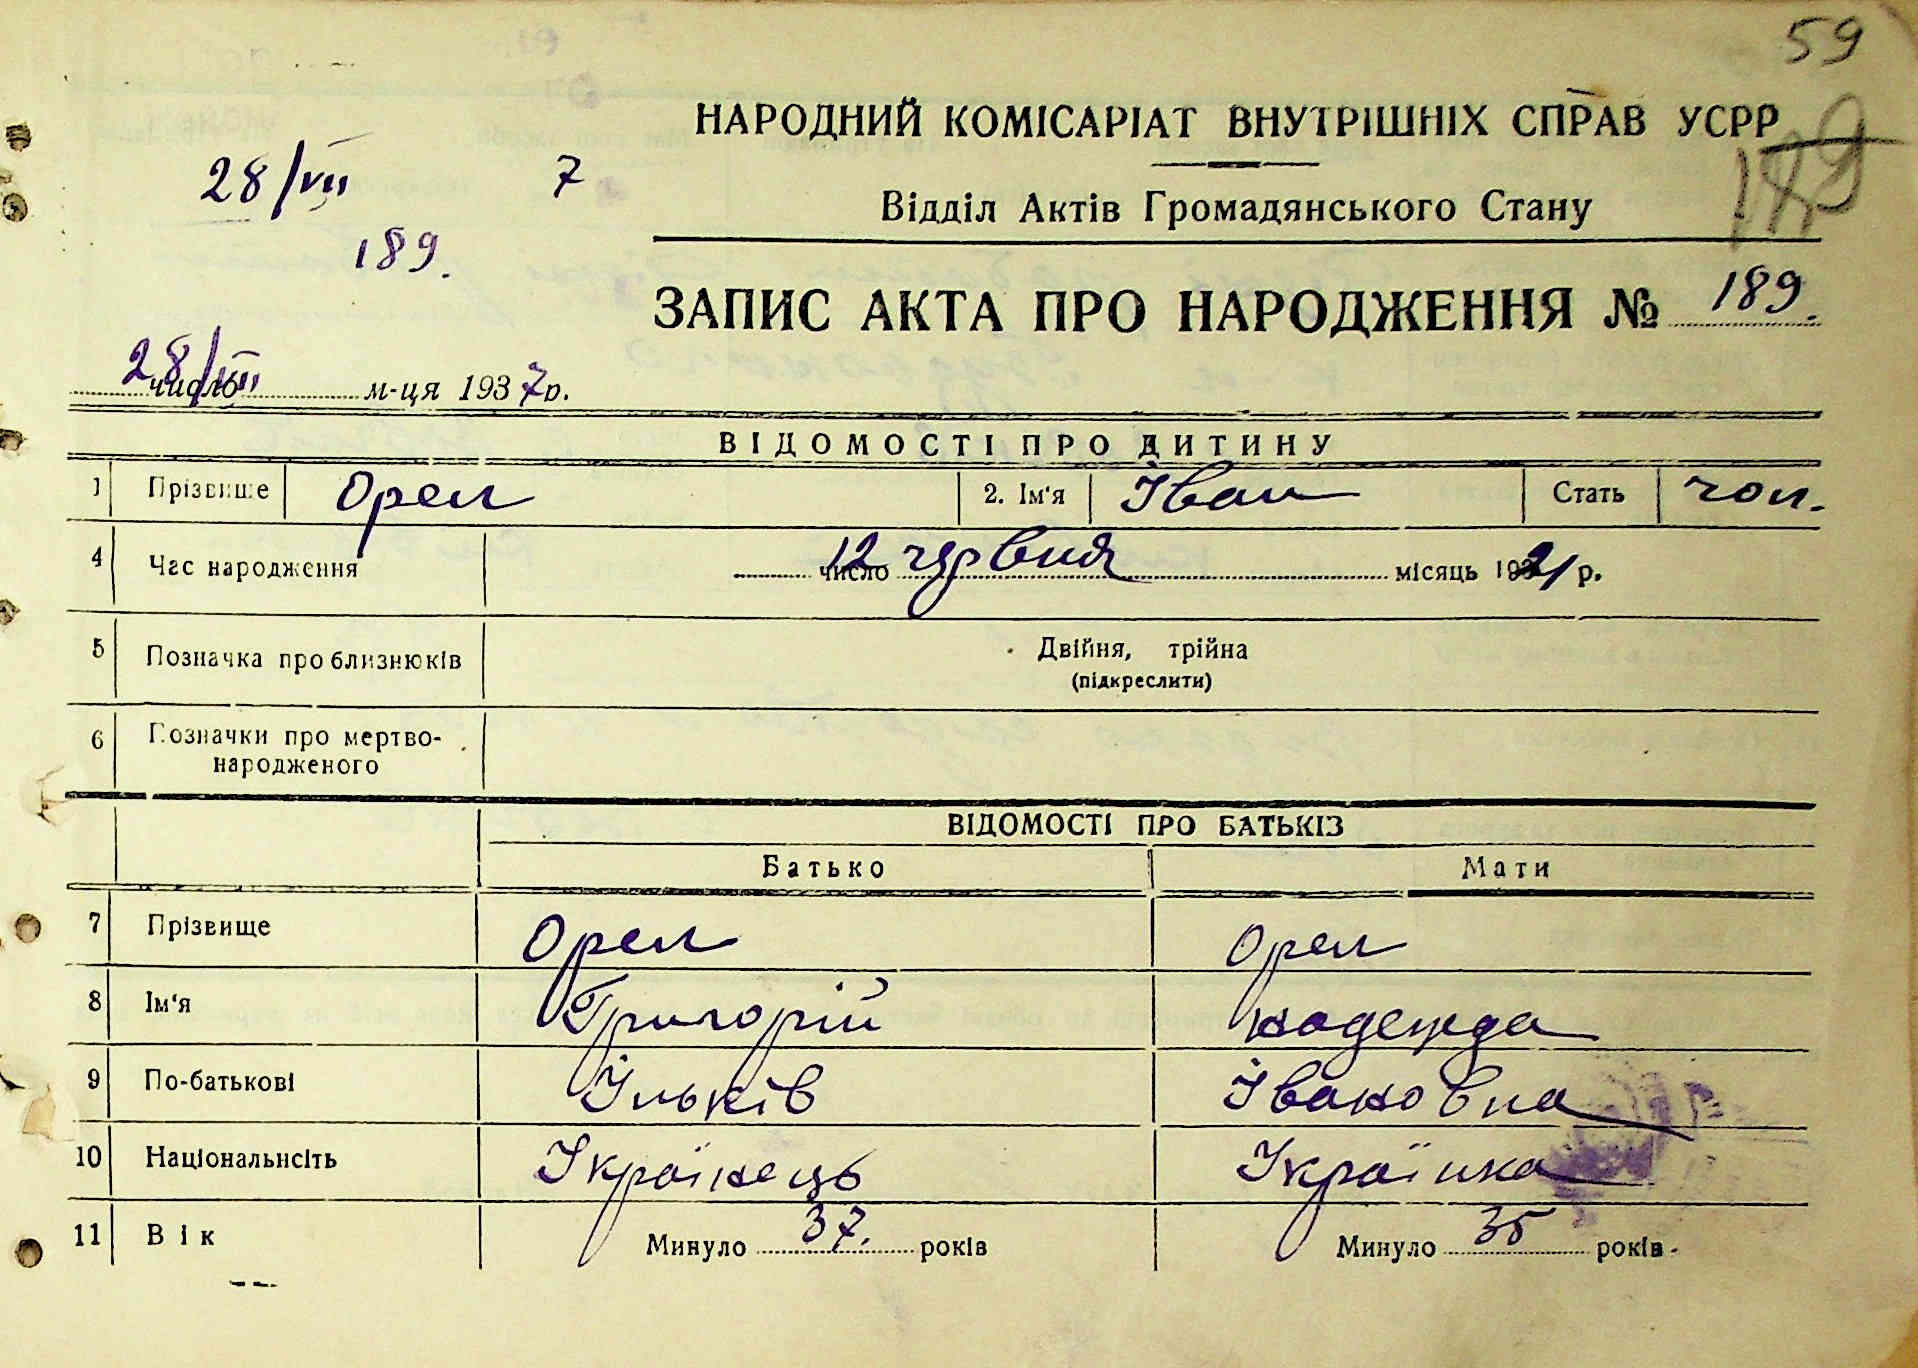 59
НАРОДНИЙ КОМІСАРІАТ ВНУТРІШНІХ СПРАВ УСРР
189
28/VII 7
Відділ Актів Громадянського Стану
189.
ЗАПИС АКТА ПРО НАРОДЖЕННЯ № 189.
28/VII число м-ця 1937р.
ВІДОМОСТІ ПРО ДИТИНУ
1 Прізвище Орел 2. Ім'я Іван Стать чол.
4 Час народження 12 число червня місяць 1921 р.
5 Позначка про близнюків Двійня, трійна
(підкреслити)
6 Позначки про мертво-
народженого
ВІДОМОСТІ ПРО БАТЬКІВ
Батько Мати
7 Прізвище Орел Орел
8 Ім'я Григорій Надежда
9 По-батькові Ільків Івановна
10 Національнсіть Українець Українка
11 Вік Минуло 37. років Минуло 35 років